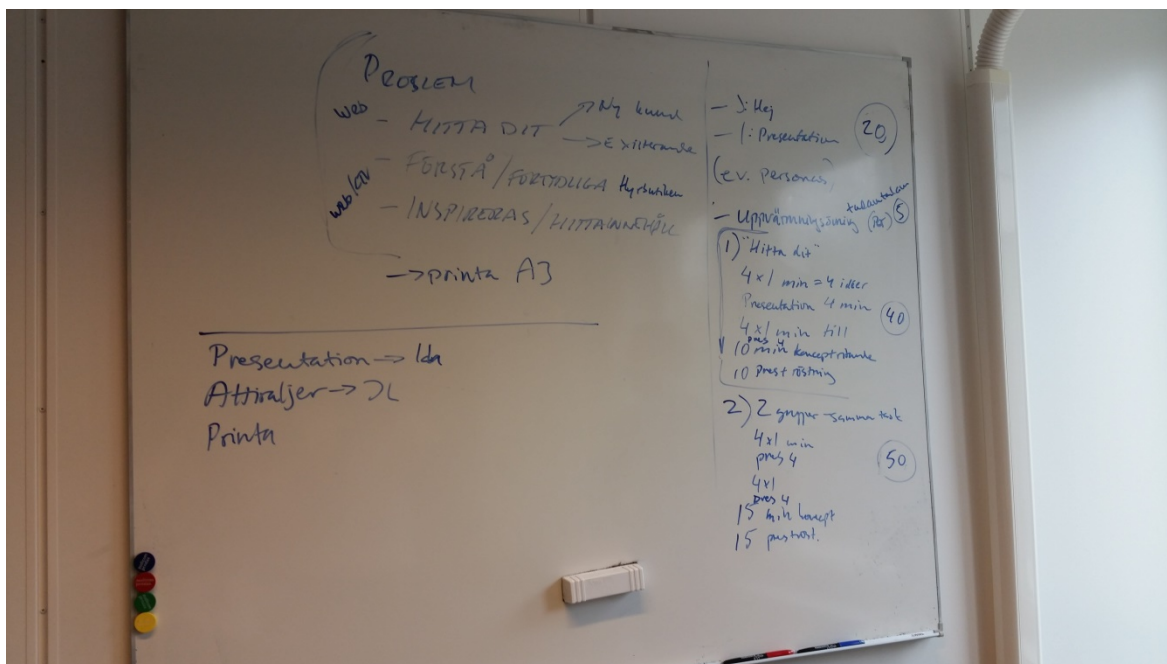 PROBLEM
web
- HITTA DIT
→ Ny kund
→ Existerande
web/
- FÖRSTÅ / FÖRTYDLIGA Hyrbutiken
- INSPIRERAS / HITTA INNEHÅLL
→ printa A3
Presentation → Ida
Attiraljer →
Printa
- J: Hej
- I: Presentation
20
(ev. personas)
- Uppvärmningsövning (Per) 5
1) "Hitta dit"
4x1 min = 4 idéer
Presentation 4 min
4x1 min till
pres 4
40
10 min konceptritande
10 pres+röstning
2) 2 grupper - samma task
4x1 min
pres 4
50
4x1
pres 4
15 min koncept
15 pres+röst.